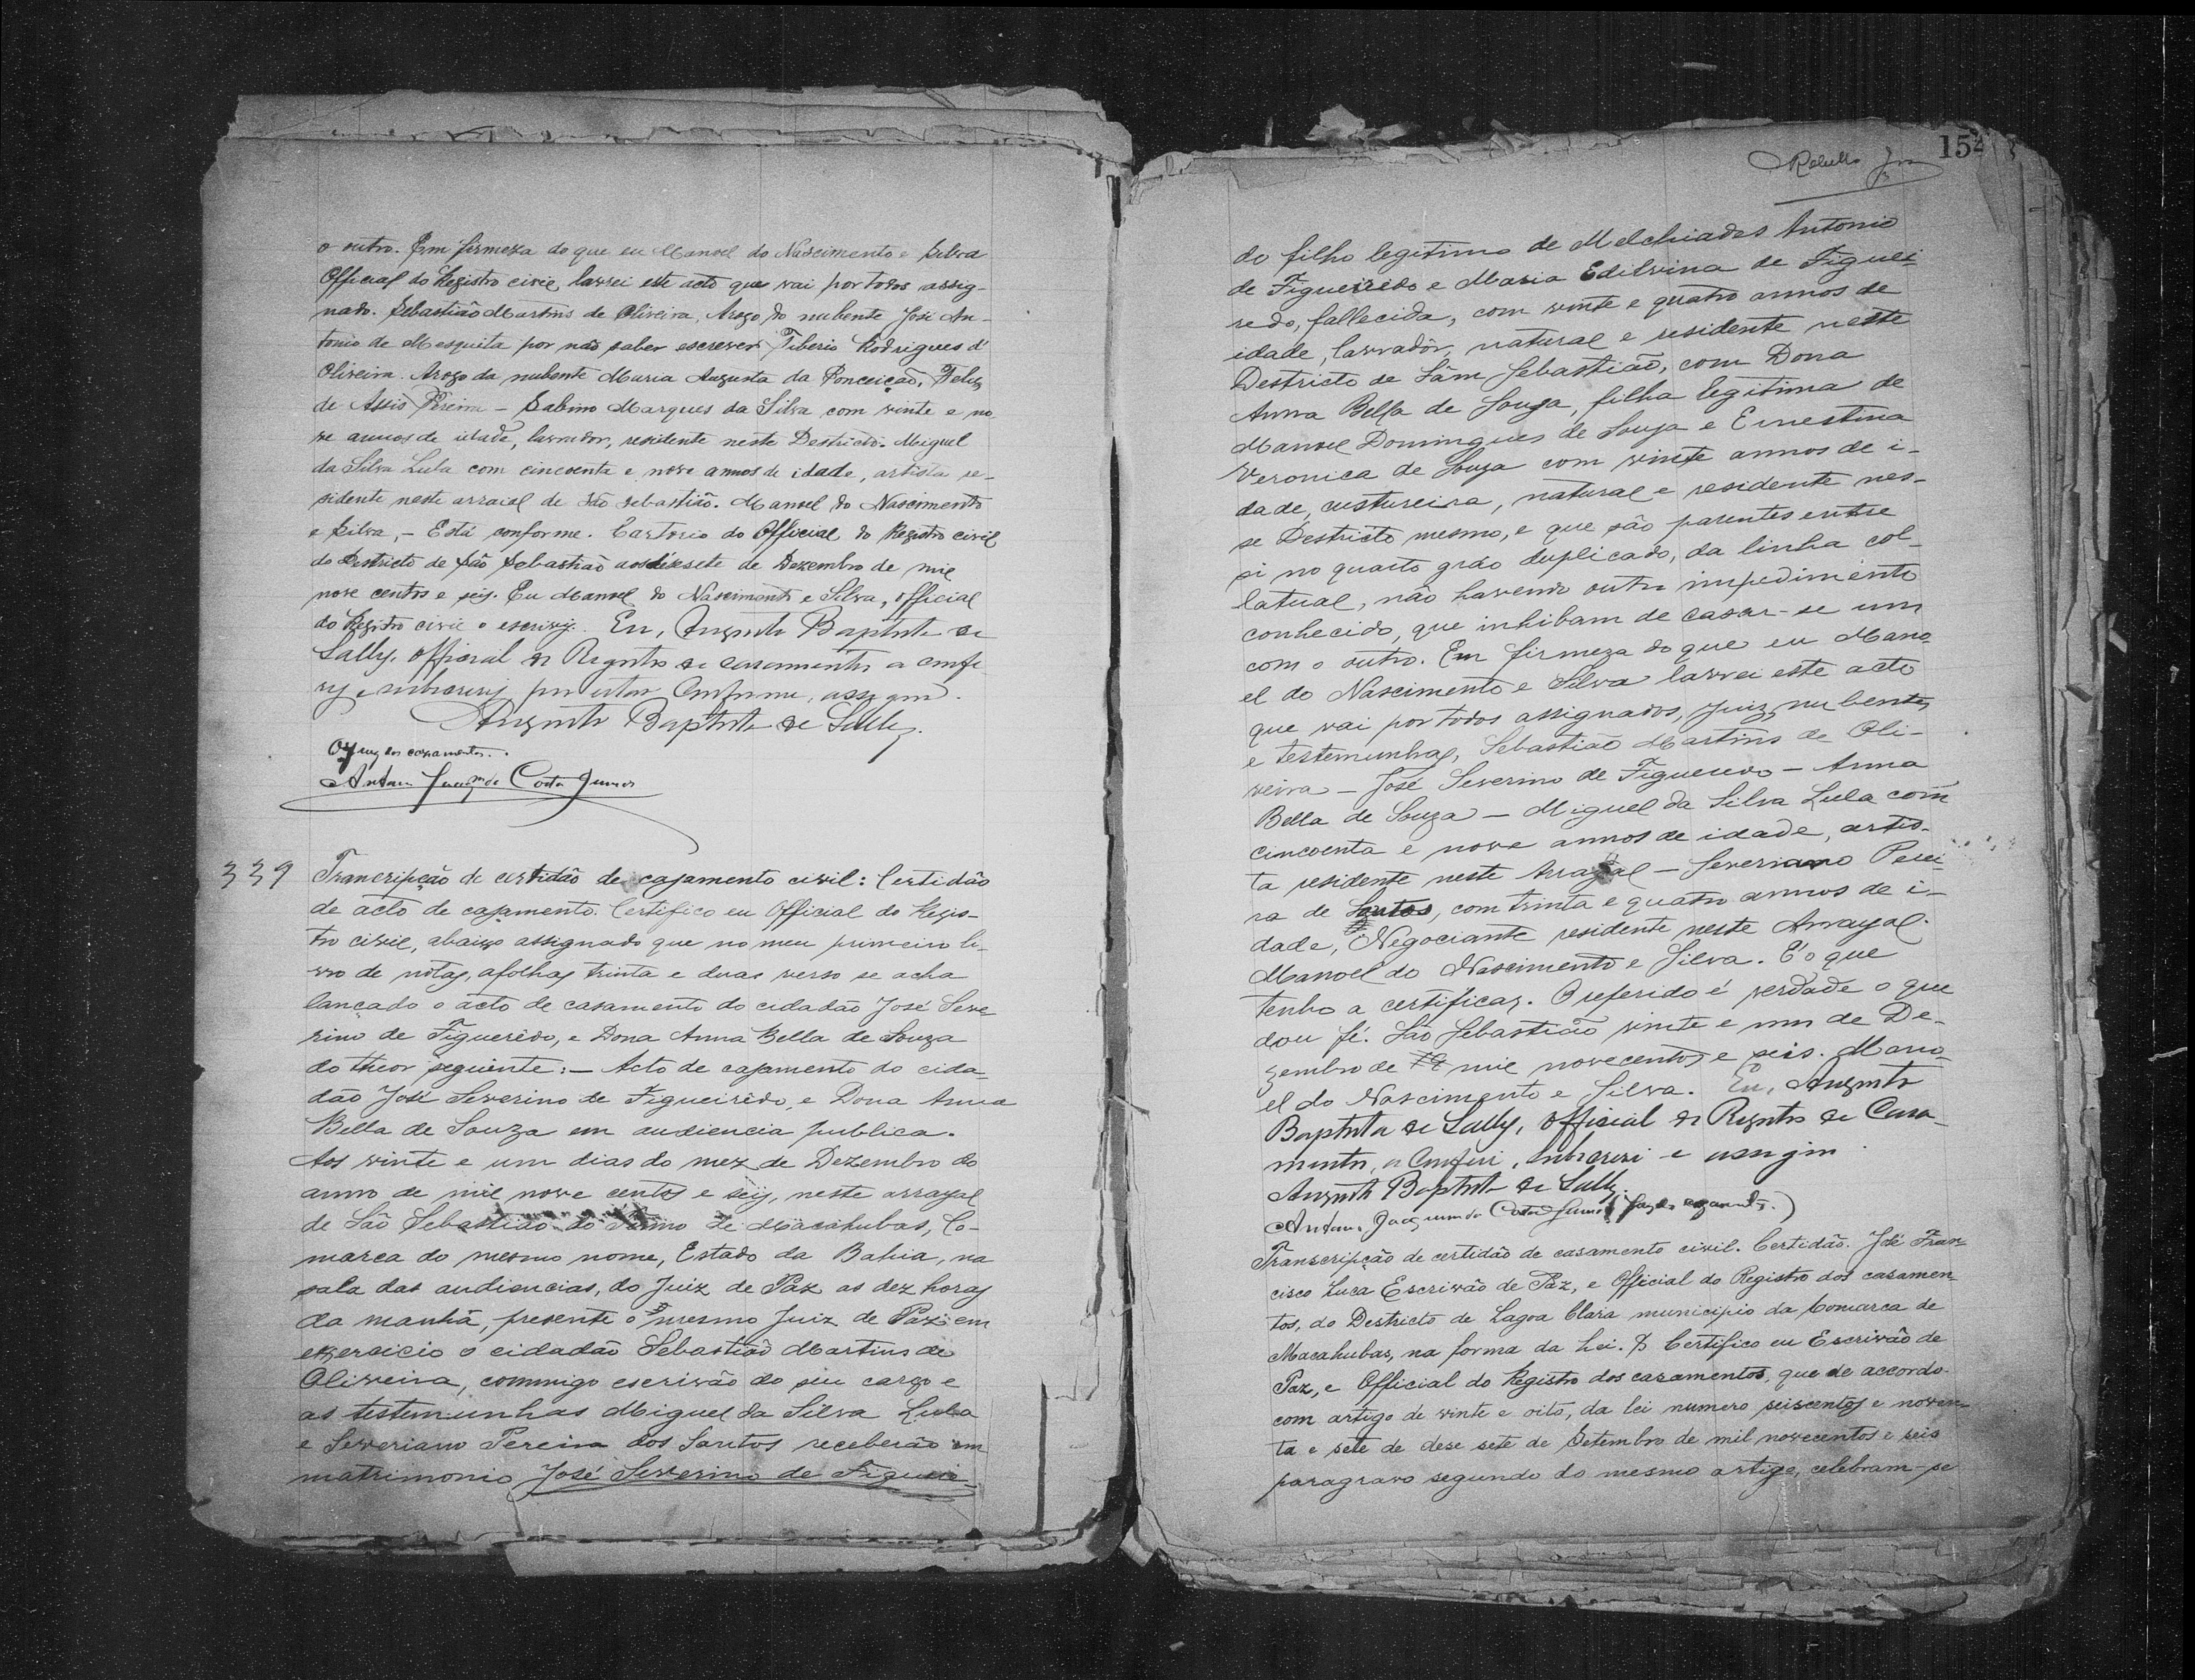 o outro. Em firmeza do que eu Manoel do Nascimento e Silva
Official do Registro civil, lavrei este acto que vai por todos assig-
nado. Sebastião Martins de Oliveira, Arogo do nubente José An-
tonio de Mesquita por não saber escrever Tiberio Rodrigues d'
Oliveira. Arogo da nubente Maria Augusta da Conceição, Felis
de Assis Pereira - Sabino Marques da Silva com vinte e no-
ve annos de idade, lavrador, residente neste Destricto. Miguel
da Silva Lula com cincoenta e nove annos de idade, artista re-
sidente neste arraial de São Sebastião. Manoel do Nascimento
e Silva, - Está conforme. Cartorio do Official do Registro civil
do Destricto de São Sebastião aos desesete de Dezembro de mil
nove centos e seis. Eu Manoel do Nascimento e Silva, official
do Registro civil o escrivy. Eu, Augusto Baptista de
Lally, official do Registro de casamentos a confe
ry e subscrevy por estar Conforme, assigno.
Augusto Baptista de Lally.
O Juiz dos casamentos.
Antonio Joaqm da Costa Junior
339
Transcripção de certidão de cazamento civil: Certidão
de acto de cazamento. Certifico eu Official do Regis-
tro civil, abaixo assignado que no meu primeiro li-
vro de notas, afolhas trinta e duas verso se acha
lançado o acto de casamento do cidadão José Seve-
rino de Figuerêdo, e Dona Anna Bella de Souza
do theor seguinte: - Acto de cazamento do cida-
dão José Severino de Figueirêdo, e Dona Anna
Bella de Souza em audiencia publica.
Aos vinte e um dias do mez de Dezembro do
anno de mil nove centos e seis, neste arrayal
de São Sebastião do Termo de Macahubas, Co-
marca do mesmo nome, Estado da Bahia, na
sala das audiencias, do Juiz de Paz as dez horas
da manhã, presente o mesmo Juiz de Paz em
exercicio o cidadão Sebastião Martins de
Oliveira, commigo escrivão do seu cargo e
as testemunhas Miguel da Silva Lula
e Severiano Pereira dos Santos receberão em
matrimonio José Severino de Figueirê-
154
do filho legitimo de Melchiades Antonio
de Figueirêdo e Maria Edilvina de Figuei-
redo, fallecida, com vinte e quatro annos de
idade, lavradôr, natural e residente neste
Destricto de Sâm Sebastião, com Dona
Anna Bella de Souza, filha legitima de
Manoel Domingues de Souza e Ernestina
Veronica de Souza com vinte annos de i-
dade, custureira, natural e residente nes-
se Destricto mesmo, e que são parentes entre
si no quarto gráo duplicado, da linha col-
latual, não havendo outro impedimento
conhecido, que inhibam de casar-se um
com o outro. Em firmeza do que eu Mano-
el do Nascimento e Silva lavrei este acto
que vai por todos assignados, Juiz, nubentes
e testemunhas, Sebastião Martins de Oli-
veira - José Severino de Figueredo - Anna
Bella de Souza - Miguel da Silva Lula com
cincoenta e nove annos de idade, artis-
ta residente neste Arrayal - Severiano Perei-
ra de Santos, com trinta e quatro annos de i-
dade, Negociante residente neste Arrayal.
Manoel do Nascimento e Silva. É o que
tenho a certificar. O referido é verdade o que
dou fé. São Sebastião vinte e um de De-
zembro de mil novecentos e seis. Mano-
el do Nascimento e Silva. Eu, Augusto
Baptista de Lally, official do Registro de Casa-
mentos, a Conferi, subscrevi e assigno
Augusto Baptista de Lally.
Antonio Joaquim da Costa Junior (Juiz dos casamentos.)
Transcripção de certidão de casamento civil. Certidão. José Fran-
cisco Luca Escrivão de Paz, e Official do Registro dos casamen-
tos, do Destricto de Lagoa Clara municipio da Comarca de
Macahubas, na forma da Lei. & Certifico eu Escrivão de
Paz, e Official do Registro dos casamentos, que de accordo
com artigo de vinte e oito, da lei numero seiscentos e noven-
ta e sete de dese sete de Setembro de mil novecentos e seis
paragravo segundo do mesmo artigo, celebram-se